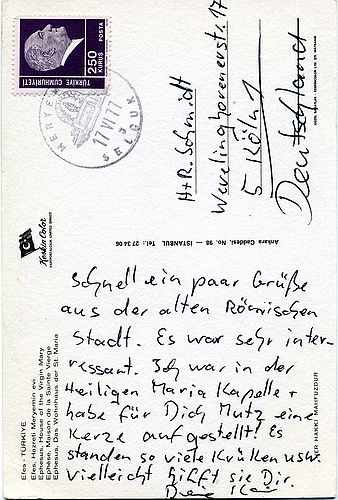 250
KURUŞ
POSTA
TÜRKİYE CUMHURİYETİ
MERYEM
17 VI 77
SELÇUK
H+R. Schmidt
Wevelinghovenerstr. 17
5 Köln 1
Deutschland
Keskin Color
Ankara Caddesi. No. 98 — İSTANBUL Tel.: 27 34 06
HER HAKKI MAHFUZDUR
Efes - TÜRKİYE
Efes, Hazreti Meryemin evi
Ephesus, House of the Virgin Mary
Ephèse, Maison de la Sainte Vierge
Ephesus, Das Wohnhaus der St. Maria
Schnell ein paar Grüße
aus der alten Römischen
Stadt. Es war sehr inter-
ressant. Ich war in der
Heiligen Maria Kapelle +
habe für Dich Mutz eine
Kerze aufgestellt! Es
standen so viele Krüken usw.
vielleicht hilft sie Dir.